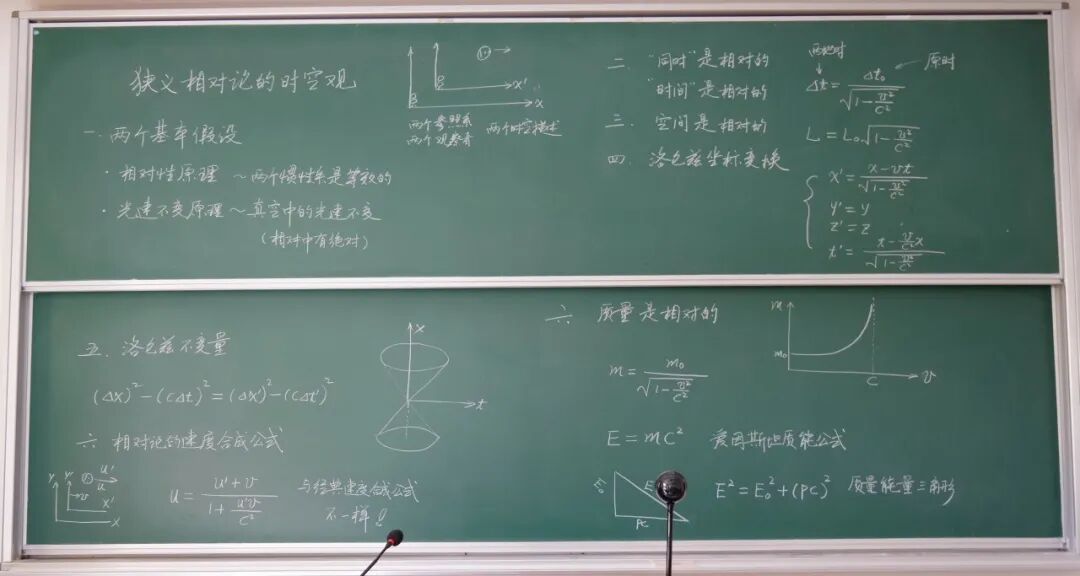 狭义相对论的时空观
一. 两个基本假设
· 相对性原理 ~ 两个惯性系是等效的
· 光速不变原理 ~ 真空中的光速不变
(相对中有绝对)
x'
x
两个参照系
两个观察者
两个时空描述
二. "同时"是相对的
"时间"是相对的
Δt = Δt₀/√(1-v²/c²)
原时
三. 空间是相对的
L = L₀√(1-v²/c²)
四. 洛仑兹坐标变换
x' = (x-vt)/√(1-v²/c²)
y' = y
z' = z
t' = (t-v/c² x)/√(1-v²/c²)
五. 洛仑兹不变量
(Δx)² - (cΔt)² = (Δx')² - (cΔt')²
x
t
六 相对论的速度合成公式
Y Y' u'
v u
X'
X
u = (u'+v)/(1+u'v/c²)
与经典速度合成公式
不一样!!
六 质量是相对的
m = m₀/√(1-v²/c²)
m
m₀
c
v
E = mc² 爱因斯坦质能公式
E₀
E
Pc
E² = E₀² + (Pc)² 质量能量三角形